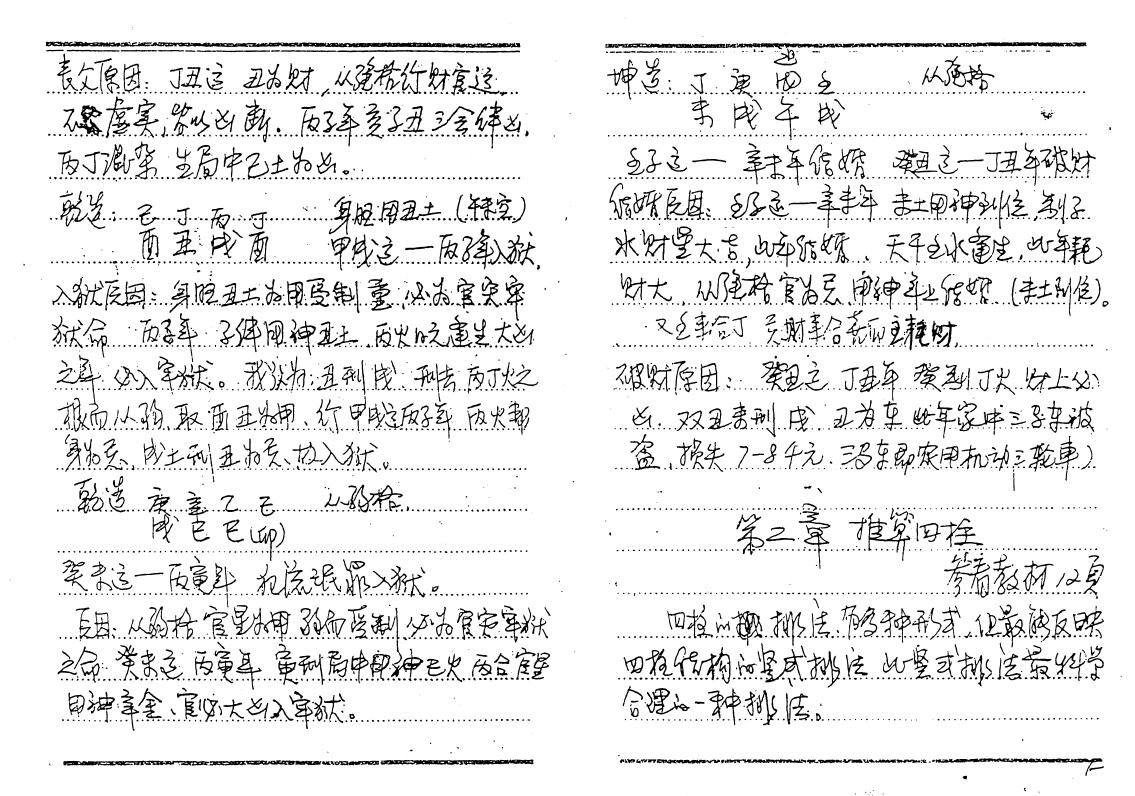 丧父原因：丁丑运 丑为财，从强格行财官运，
不 虚实，皆以凶断．丙子年亥子丑三会律凶，
丙丁混杂 生局中己土为凶。
乾造：己 丁 丙 丁 身旺用丑土（午未空）
酉 丑 戌 酉 甲戌运一一丙子年入狱，
入狱原因：身旺丑土为用受制重，必为官灾牢
狱命 丙子年 子律用神丑土，丙火晦重生大凶
之年 必入牢狱。我认为：丑刑戌 刑去丙丁火之
根而从弱，取酉丑为用、行甲戌运丙子年 丙火帮
身为忌，戌土刑丑为忌、故入狱。
乾造 庚 辛 乙 己 从弱格．
戌 巳 巳（卯）
癸未运一一丙寅年 犯流氓罪入狱。
原因：从弱格 官星为用 弱而受制 必为官灾牢狱
之命 癸未运 丙寅年 寅刑局中用神巳火 丙合官星
用神辛金、官必大凶入牢狱。
坤造：丁 庚 丙 壬 从强格
未 戌 午 戌
壬子运一一辛未年结婚 癸丑运一一丁丑年破财
结婚原因：壬子运一一辛未年 未土用神到位，制子
水财星大吉，此年结婚、天干壬水重生，此年耗
财大，从强格官为忌，用神年上结婚（未土到位）。
又壬来合丁 忌财来合喜而主耗财．
破财原因：癸丑运 丁丑年 癸剋丁火 财上必
凶．双丑来刑戌．丑为车 此年家中三子车被
盗，损失7-8千元．三马车即农用机动三轮車）
第二章 推算四柱
参看教材12頁
四柱的 排法，有多种形式，但最能反映
四柱结构的竖式排法 此竖式排法最科学
合理的一种排法。